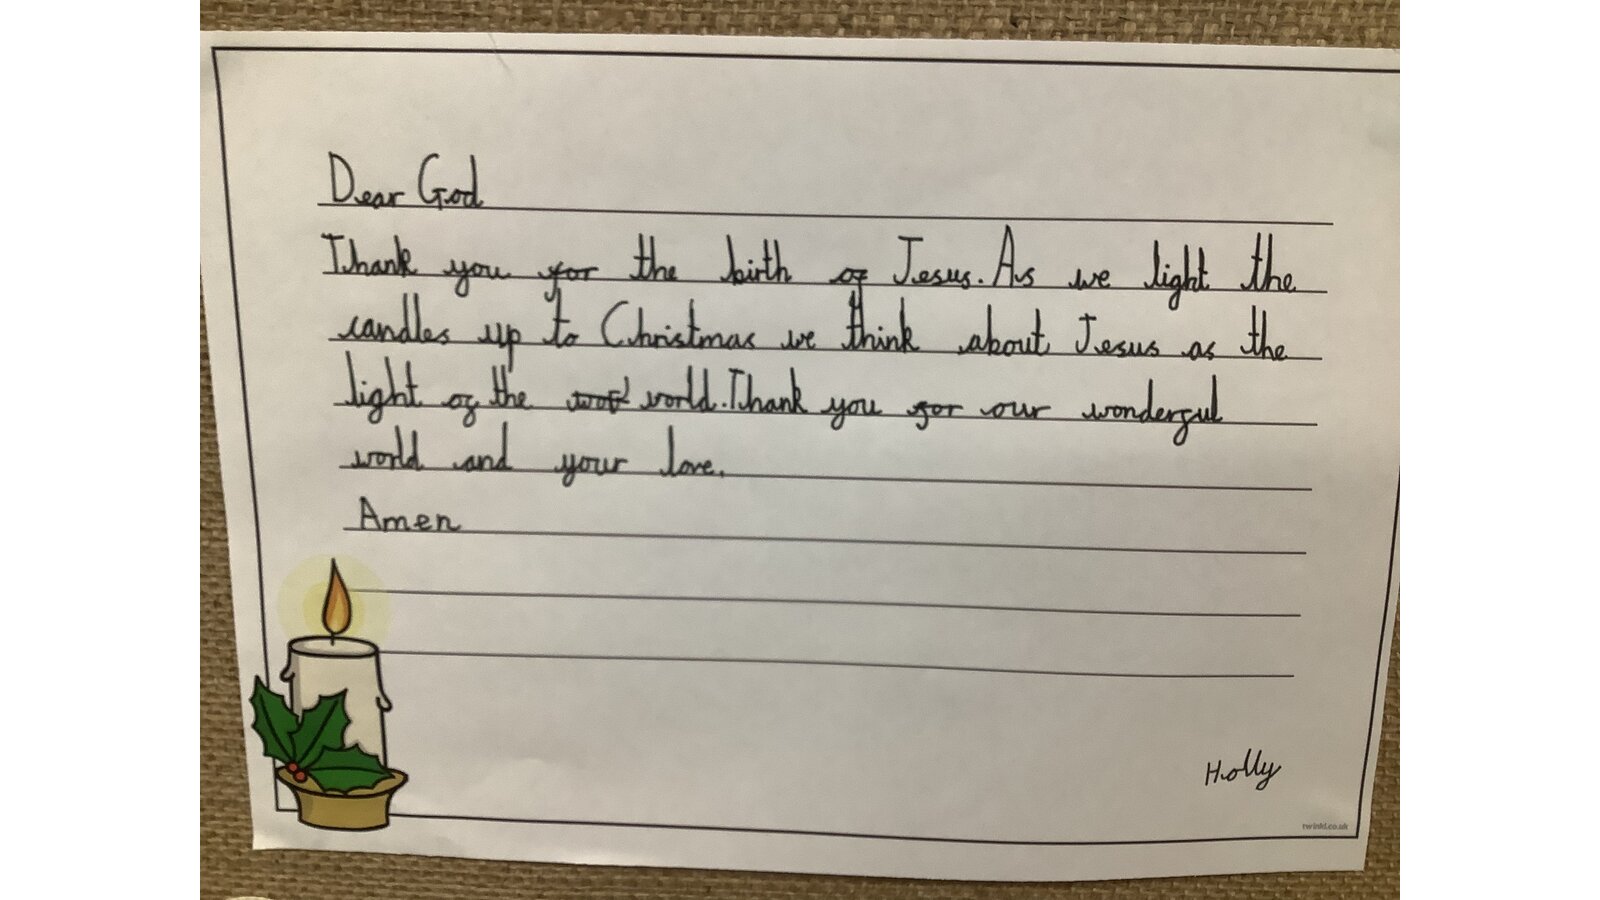 Dear God
Thank you for the birth of Jesus. As we light the
candles up to Christmas we think about Jesus as the
light of the world. Thank you for our wonderful
world and your love.
Amen
Holly
twinkl.co.uk